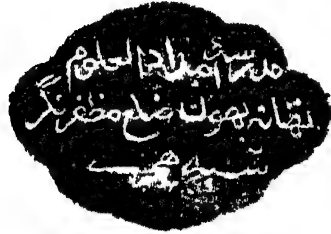 مدرسہ امداد العلوم
تھانہ بھون ضلع مظفر نگر